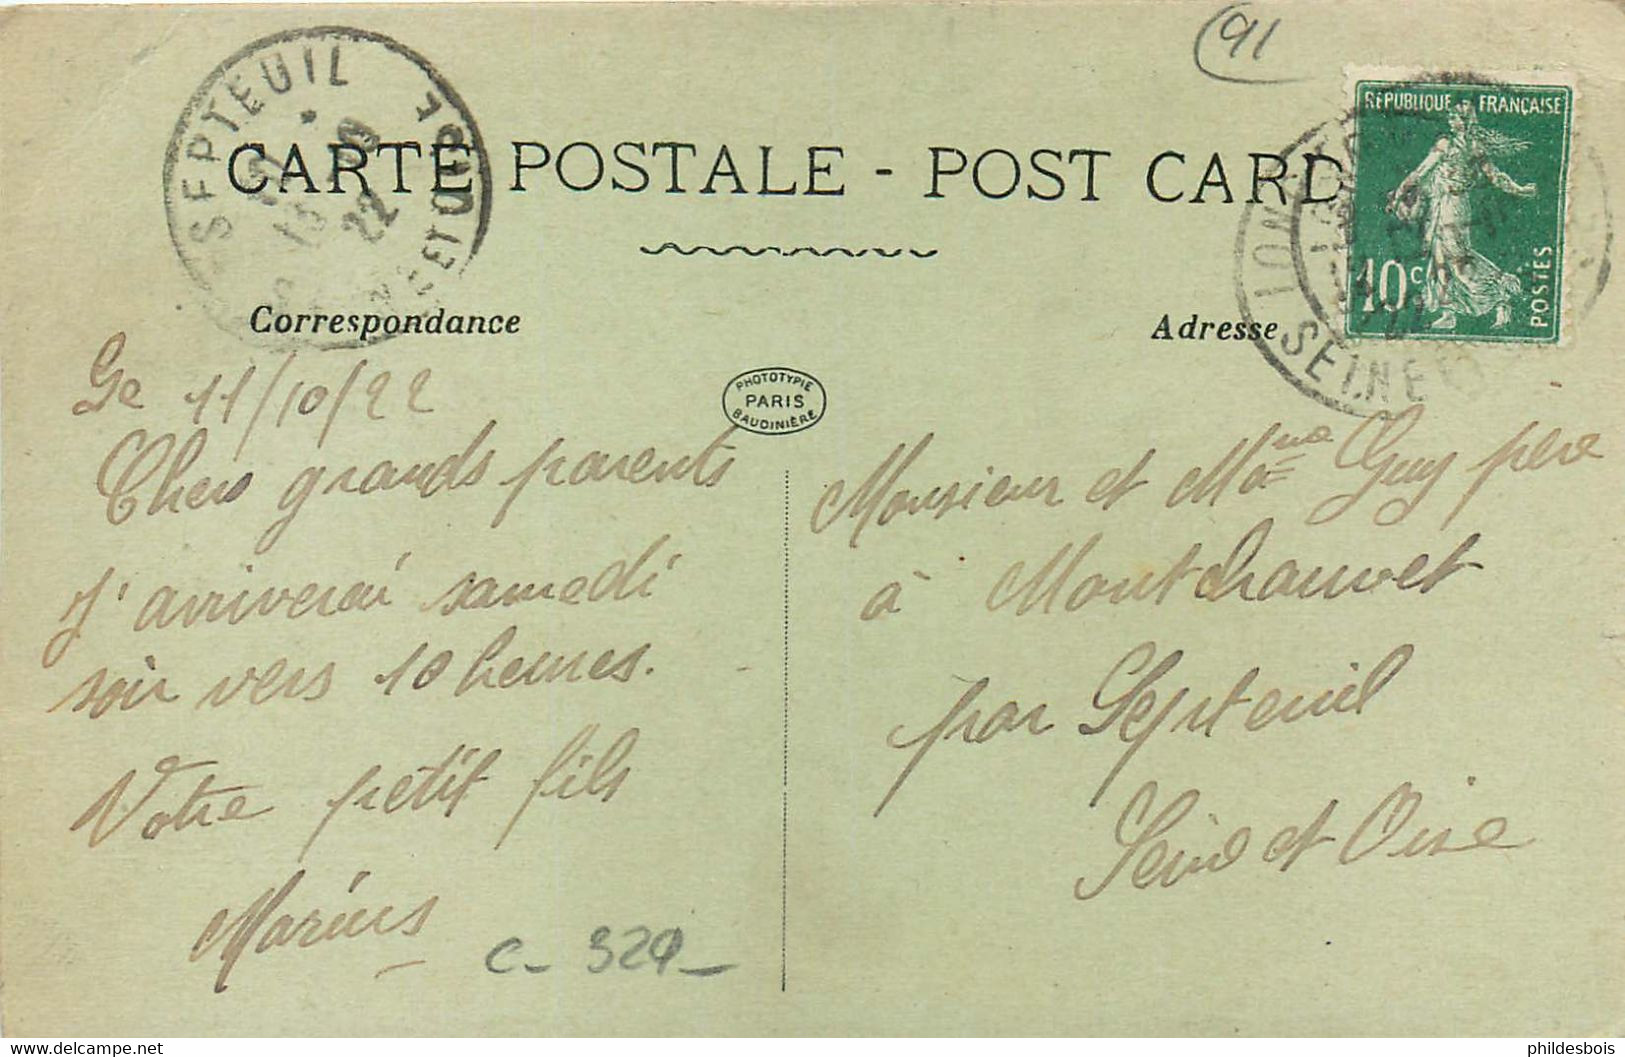 91
SEPTEUIL
SEINE ET OISE
22
RÉPUBLIQUE FRANÇAISE
10c
POSTES
SEINE ET
CARTE POSTALE - POST CARD
Correspondance
Adresse
PHOTOTYPIE
PARIS
BAUDINIÈRE
Le 11/10/22
Chers grands parents
J'arriverai samedi
soir vers 10 heures.
Votre petit fils
Marius
C- 329-
Monsieur et Mme Guy père
à Montchauvet
par Septeuil
Seine et Oise
phildesbois